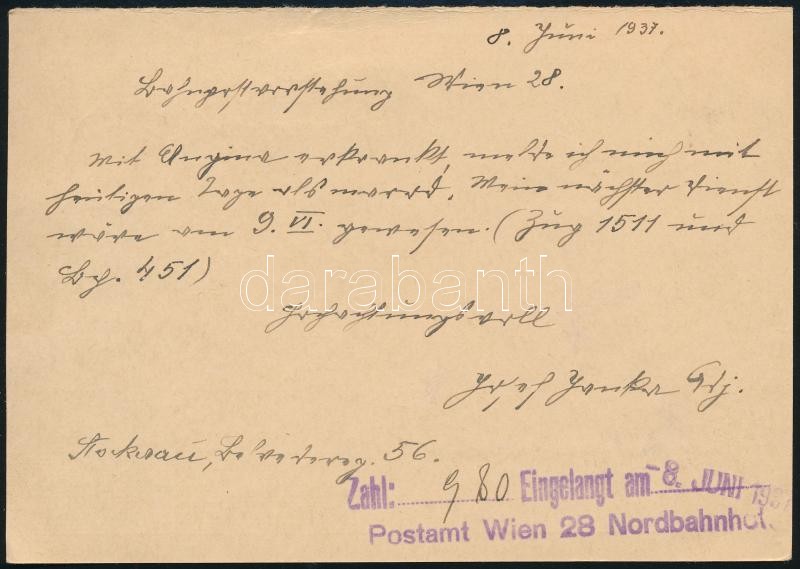 8. Juni 1937.
Bahnpostvorstehung Wien 28.
Mit Angina erkrankt, melde ich mich mit
heutigen Tage als marod. Mein nächster Dienst
wäre am 9. VI. gewesen. (Zug 1511 und
451)
darabanth
Hochachtungsvoll
Josef Adj.
Stockerau, Belvedereg. 56.
Zahl: 980 Eingelangt am -8. JUNI 1937
Postamt Wien 28 Nordbahnhof.